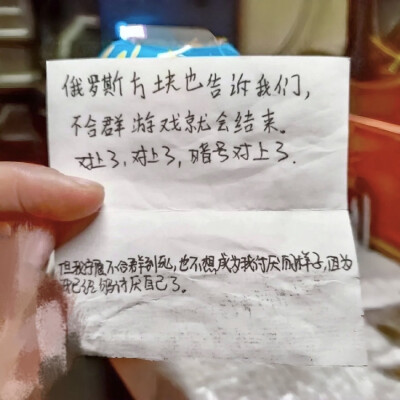 俄罗斯方块也告诉我们，
不合群游戏就会结束。
对上了，对上了，暗号对上了．
但我宁愿不合群到死，也不想成为我讨厌的样子，因为
我已经够讨厌自己了。